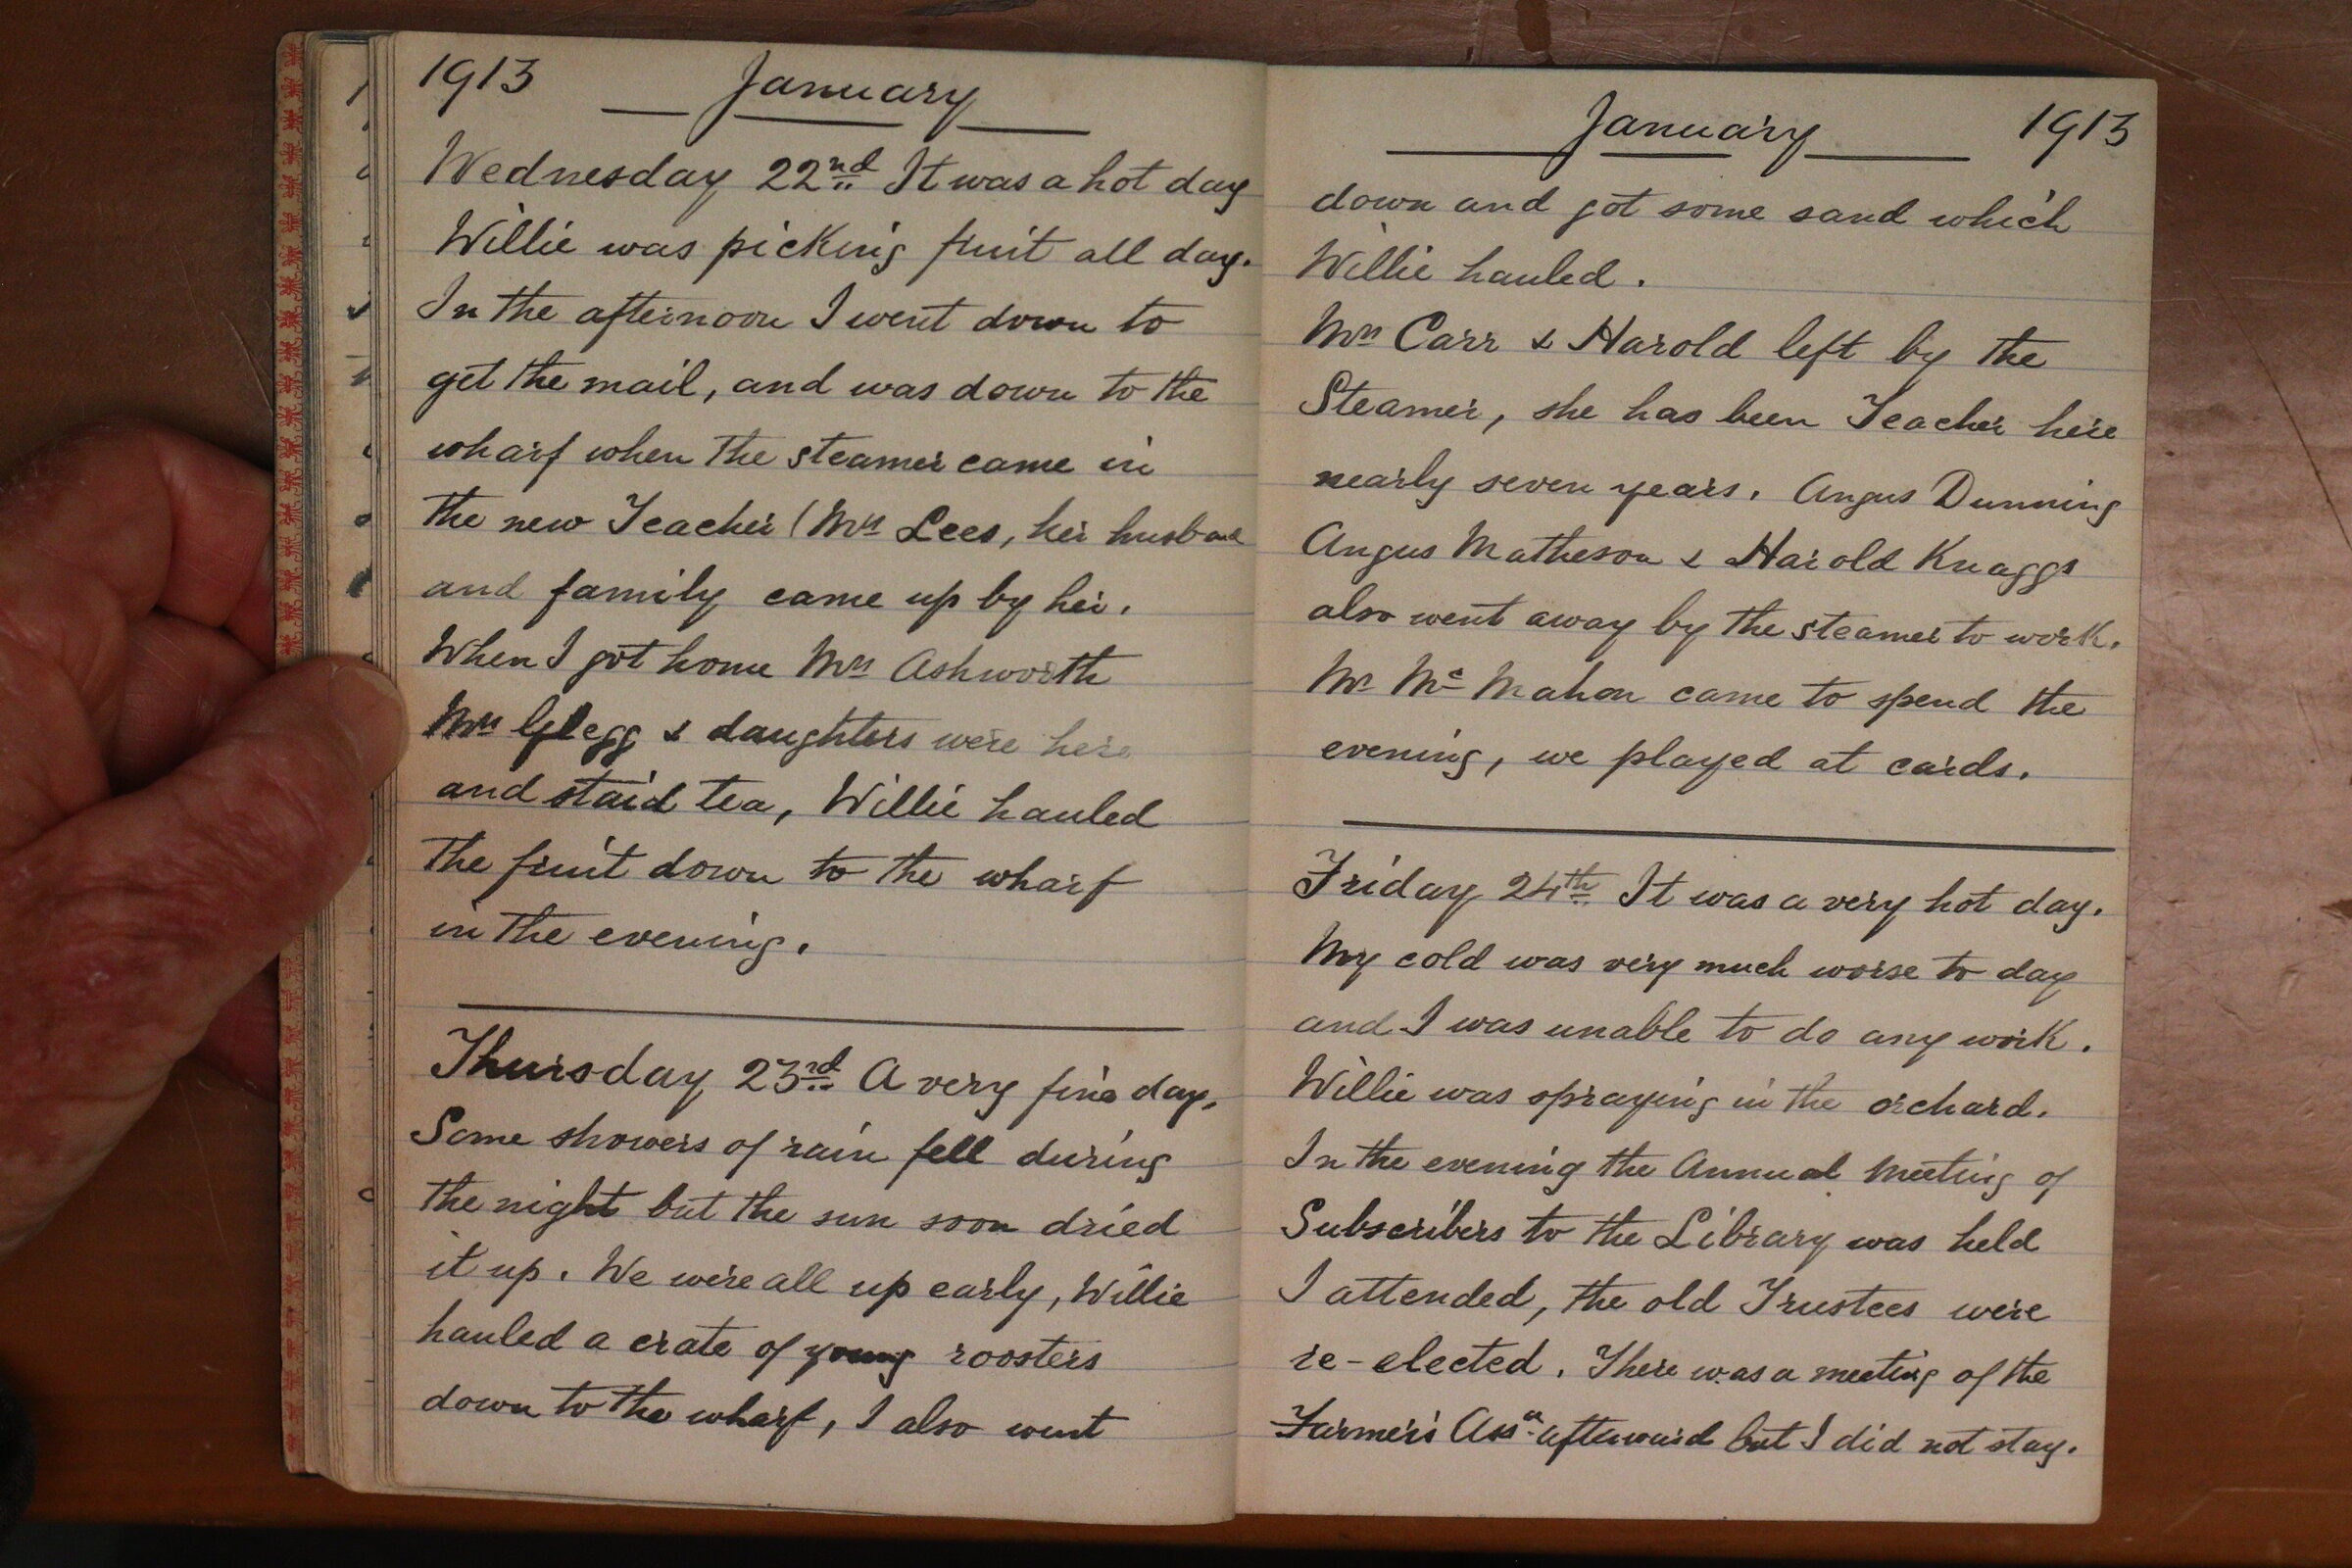 1913 January
Wednesday 22nd It was a hot day
Willie was picking fruit all day.
In the afternoon I went down to
get the mail, and was down to the
wharf when the steamer came in
the new Teacher (Mrs Lees, her husband
and family came up by her.
When I got home Mrs Ashworth
Mrs Glegg & daughters were here
and staid tea, Willie hauled
the fruit down to the wharf
in the evening.
Thursday 23rd A very fine day,
Some showers of rain fell during
the night but the sun soon dried
it up. We were all up early, Willie
hauled a crate of young roosters
down to the wharf, I also went
January 1913
down and got some sand which
Willie hauled.
Mrs Carr & Harold left by the
Steamer, she has been Teacher here
nearly seven years. Angus Dunning
Angus Matheson & Harold Knaggs
also went away by the steamer to work.
Mr McMahon came to spend the
evening, we played at cards.
Friday 24th It was a very hot day.
My cold was very much worse to day
and I was unable to do any work.
Willie was spraying in the orchard.
In the evening the Annual Meeting of
Subscribers to the Library was held
I attended, the old Trustees were
re-elected. There was a meeting of the
Farmers Assn afterward but I did not stay.